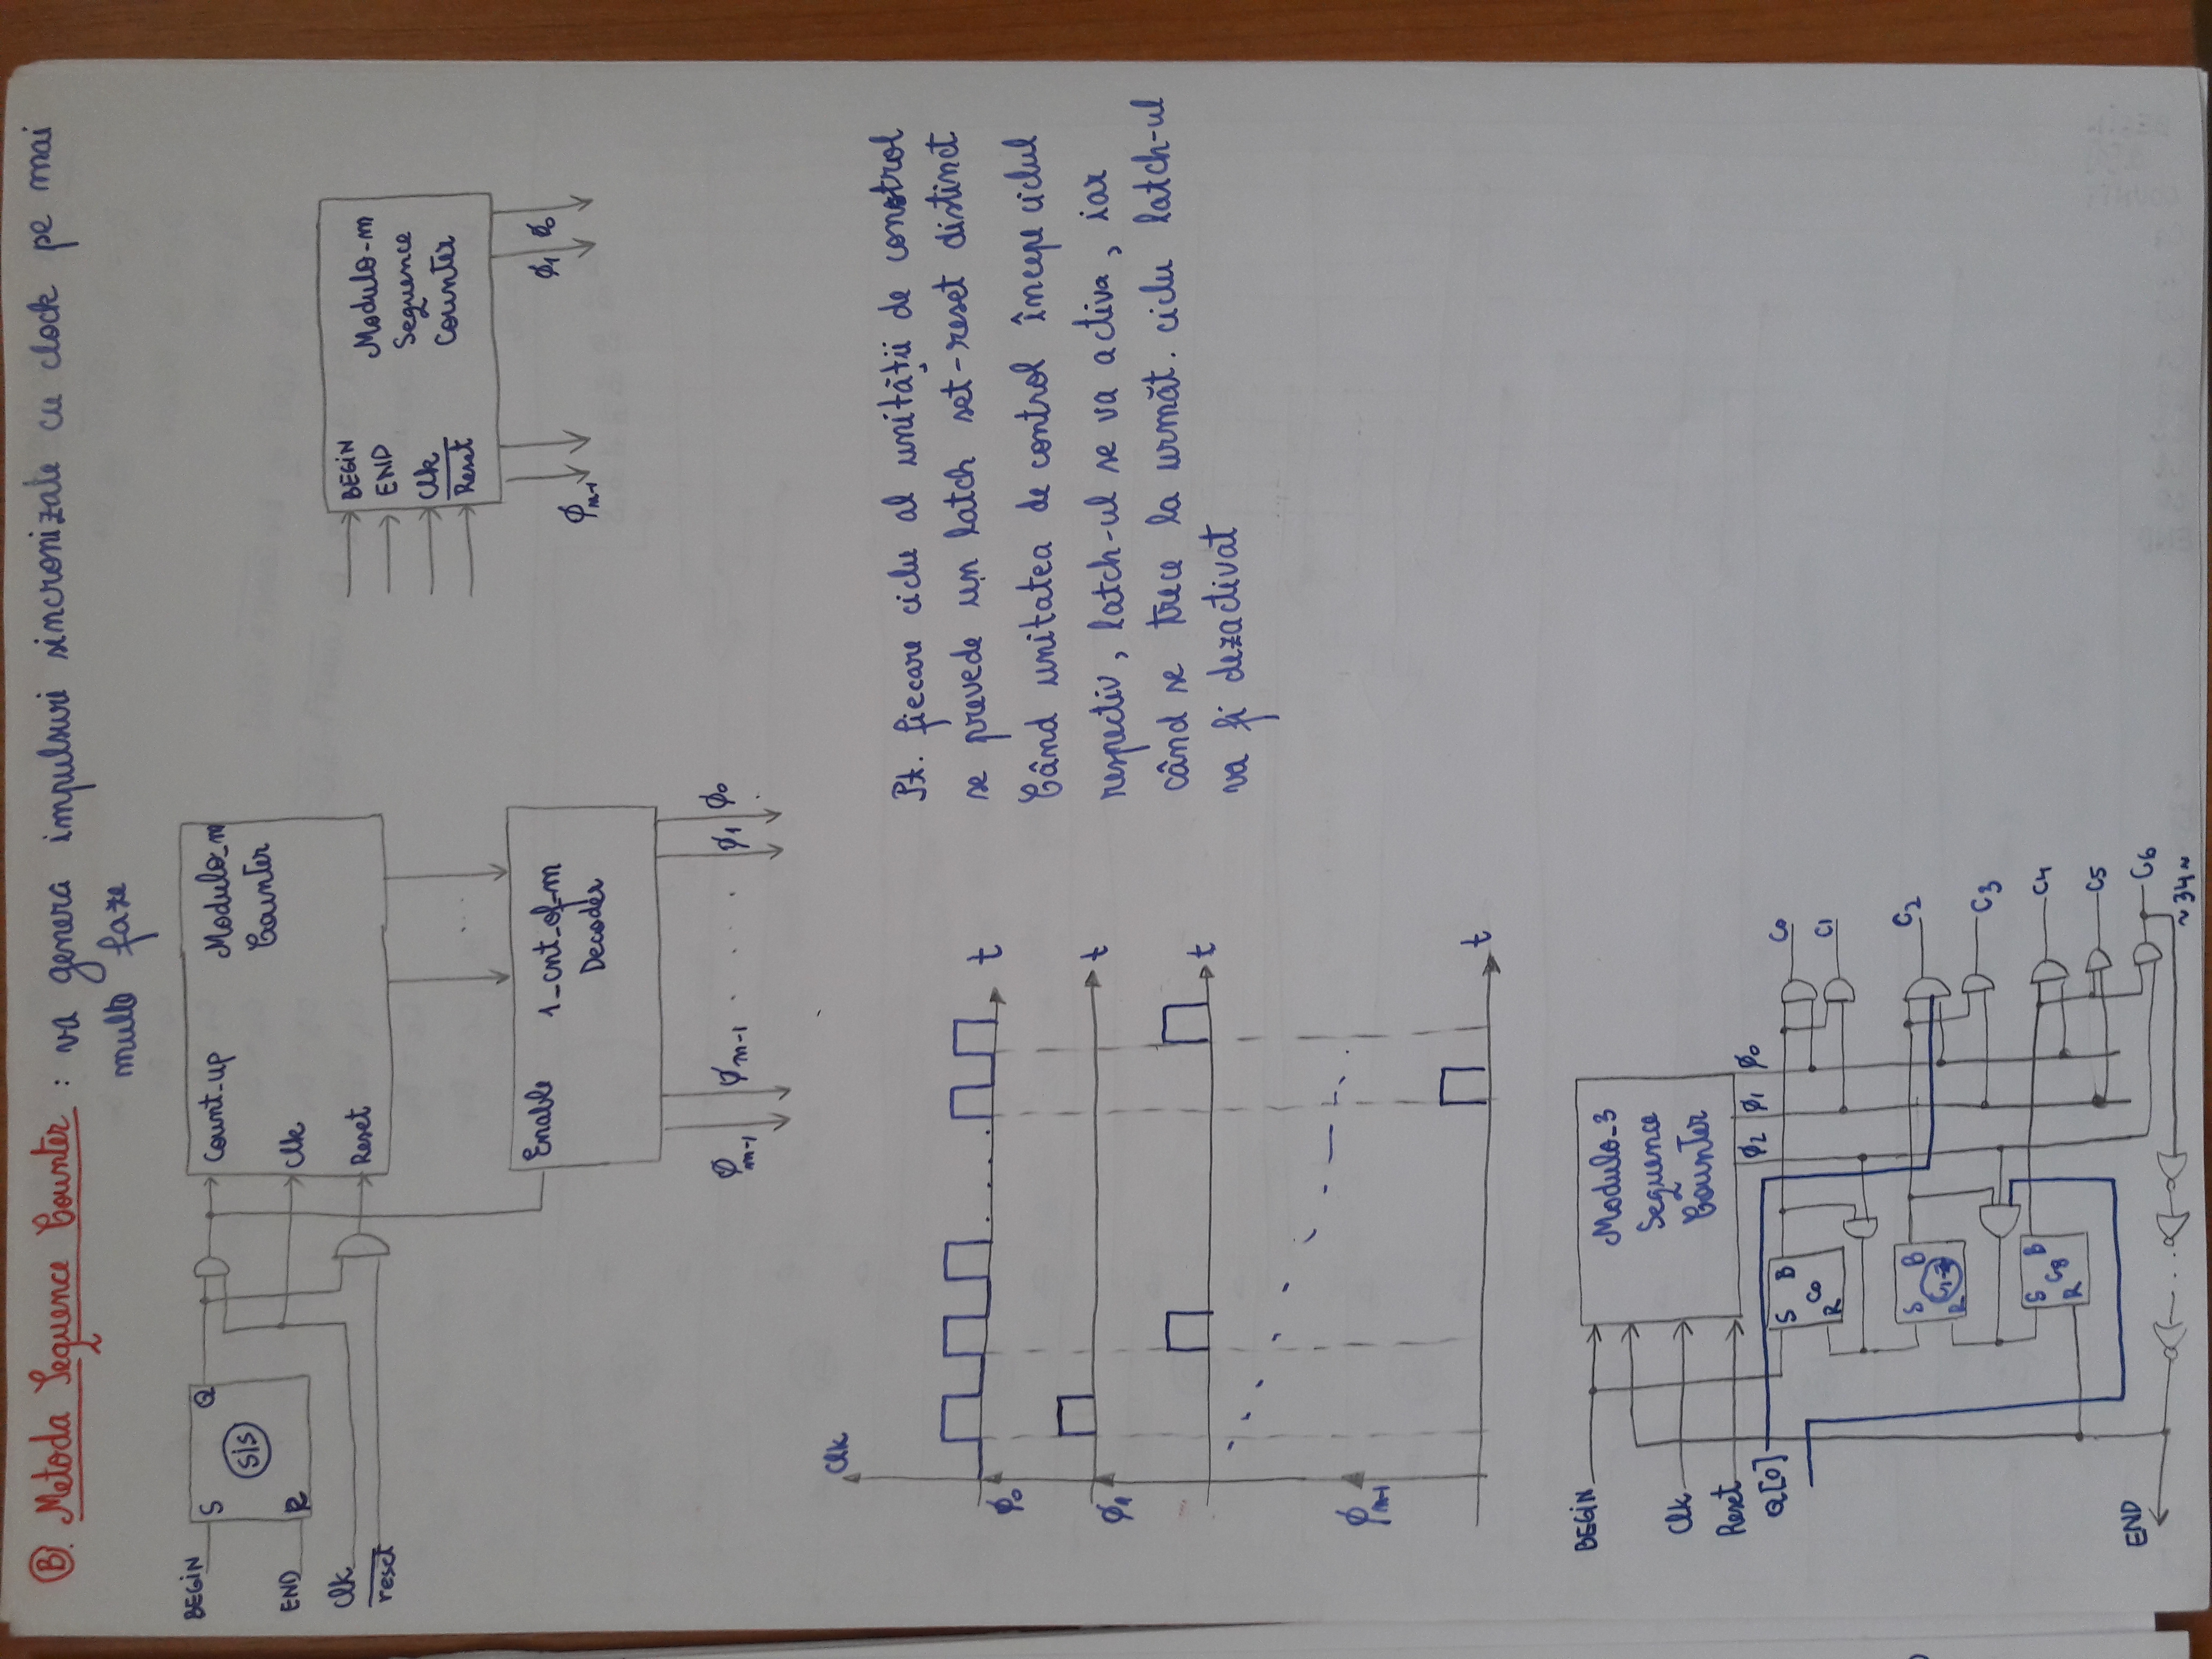 B. Metoda Sequence Counter : va genera impulsuri sincronizate cu clock pe mai
multe faze
BEGIN
S Q
S/S
END
R
Clk
reset
Count_up
Modulo_m
Counter
Clk
Reset
Enable
1_cnt_of_m
Decoder
ϕm-1 ϕm-1 . . . . ϕ1 ϕ0
BEGIN
END
Clk
Reset
Modulo-m
Sequence
Counter
ϕm-1 ϕ1 ϕ0
Clk
t
ϕ0
t
ϕ1
t
ϕm-1
t
Pt. fiecare ciclu al unității de constrol
se prevede un latch set-reset distinct
Când unitatea de control începe ciclul
respectiv, latch-ul se va activa, iar
când se trece la următ. ciclu latch-ul
va fi dezactivat
BEGIN
Clk
Reset
Q[0]
Modulo_3
Sequence
Counter
ϕ2 ϕ1 ϕ0
S B
C0
R
S B
R
S B
C8
R
C0
C1
C2
C3
C4
C5
C6
END
~34~